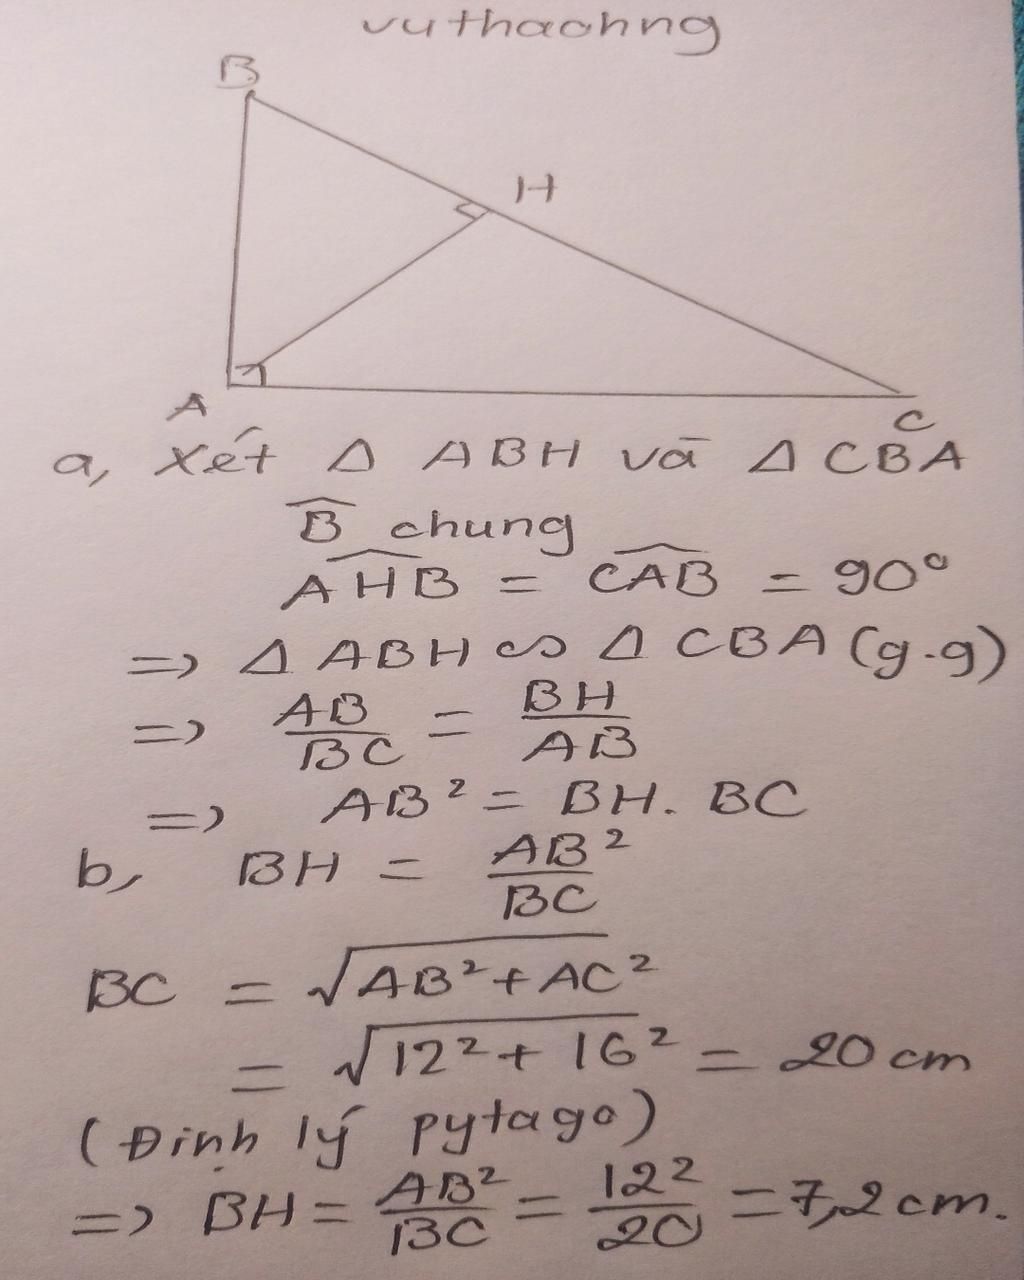 vuthaohng
B
H
A
C
a, Xét Δ ABH và Δ CBA
B̂ chung
\widehat{AHB} = \widehat{CAB} = 90°
=> Δ ABH ∽ Δ CBA (g.g)
=> AB/BC = BH/AB
=> AB² = BH. BC
b, BH = AB²/BC
BC = √AB² + AC²
= √12² + 16² = 20 cm
(Định lý pytago)
=> BH = AB²/BC = 12²/20 = 7,2 cm.